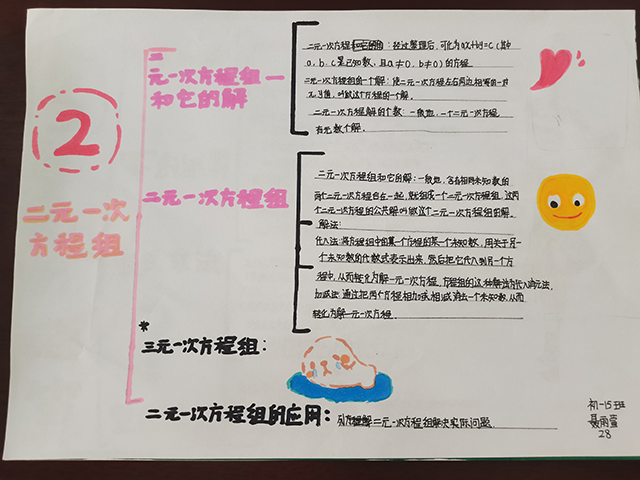 2
二元一次
方程组
二
元一次方程组一
和它的解
二元一次方程和它的解：经过整理后，可化为ax+by=c（其中
a、b、c是已知数、且a≠0、b≠0）的方程
二元一次方程组的一个解：使二元一次方程左右两边相等的一对
未知值，叫做这个方程的一个解。
二元一次方程解的个数：一般地，一个二元一次方程
有无数个解。
二元一次方程组
二元一次方程组和它的解：一般地，含有相同未知数的
两个二元一次方程合在一起，就组成一个二元一次方程组，这两
个二元一次方程的公共解叫做这个二元一次方程组的解。
解法：
代入法：将方程组中的某一个方程的某一个未知数，用关于另一
个未知数的代数式表示出来，然后把它代入到另一个方
程中，从而转化为解一元一次方程，方程组的这种解法为代入消元法，
加减法：通过把两个方程相加或相减消去一个未知数，从而
转化为解一元一次方程.
*
三元一次方程组：
二元一次方程组的应用：列方程解二元一次方程组解决实际问题.
初一15班
聂雨萱
28